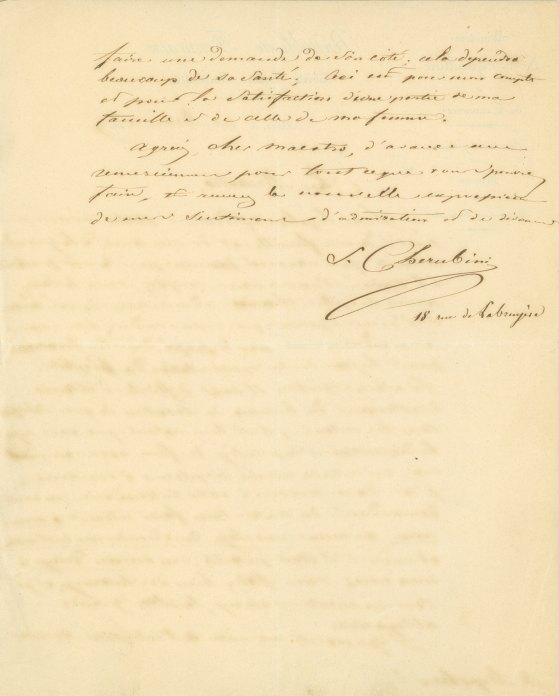 faire une demande de son côté; cela dépendra
beaucoup de sa santé. Ceci est pour mon compte
et pour la satisfaction d'une partie de ma
famille et de celle de ma femme.
Agréez, cher maestro, d'avance mes
remerciemens pour tout ce que vous pourrez
faire, et recevez la nouvelle expression
de mes sentimens d'admiration et de
S. Cherubini
18 rue de Labruyère